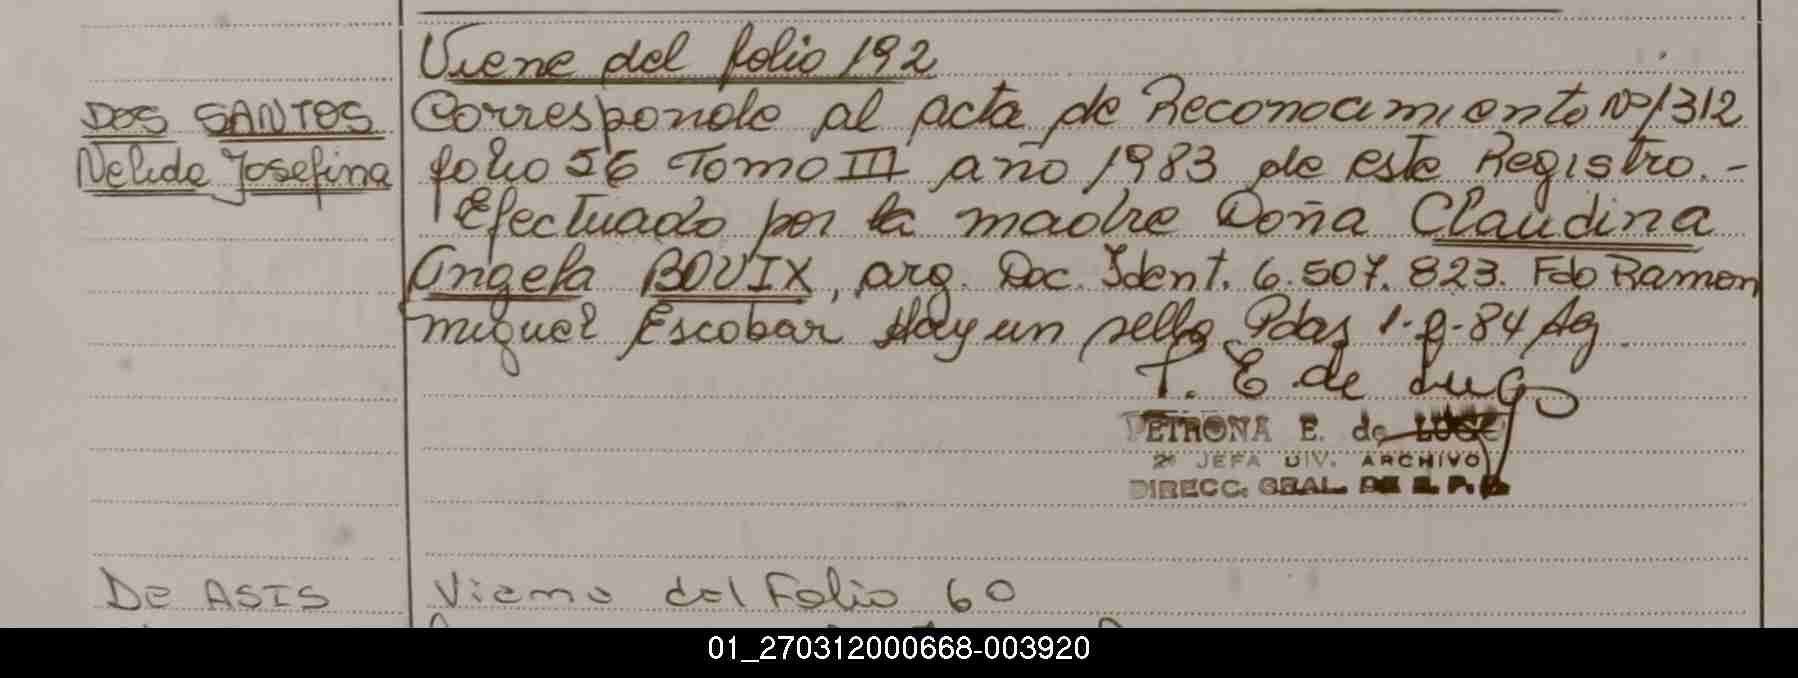 Viene del folio 192
DOS SANTOS
Nelida Josefina
Corresponde al acta de Reconocimiento Nº 1312
folio 56 Tomo III año 1983 de este Registro.-
Efectuado por la madre Doña Claudina
Angela BOUIX, arg. Doc. Ident. 6.507.823. Fdo Ramon
Miguel Escobar Hay un sello Pdas 1-8-84 Ag.
P. E. de Lugo
PETRONA E. de LUGO
2º JEFA DIV. ARCHIVO
DIRECC. GRAL. DE R. P.
De ASIS
Viene del Folio 60
01_270312000668-003920